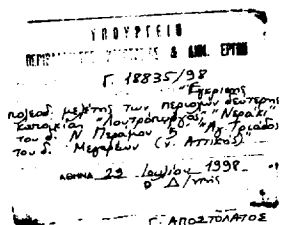 ΥΠΟΥΡΓΕΙΟ
& ΔΗΜ. ΕΡΓΩΝ
Γ. 18835/98
"Έγκρισης
πολεοδ. μελέτης των περιοχών δεύτερης
κατοικίας "Λουτρόπυργος, "Νεράκι"
του δ. Ν. Περάμου & "Αγ. Τριάδος
του δ. Μεγαρέων (ν. Αττικής)
ΑΘΗΝΑ 29 Ιουλίου 1998
Ο Δ/ντής
Γ. ΑΠΟΣΤΟΛΑΤΟΣ